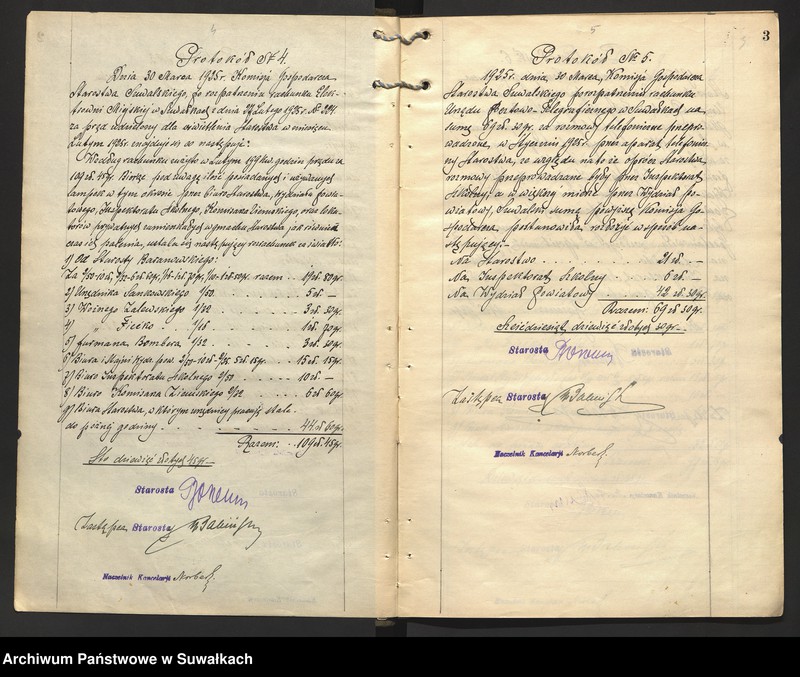 4
Protokół № 4.
Dnia 30 Marca 1925r. Komisja Gospodarcza
Starostwa Suwalskiego, po rozpatrzeniu rachunku Elek-
trowni Miejskiej w Suwałkach z dnia Lutego 1925r. №
za prąd udzielony dla oświetlenia Starostwa w miesiącu
Lutym 1925r. znajduje się co następuje:
Według rachunku zużyto w Lutym godzin prądu za
109 zł. 45 gr. Biorąc pod uwagę ilość posiadanych i używanych
lampek w tym okresie przez biuro Starostwa, Wydziału Powia-
towego, Inspektoratu Szkolnego, Komisarza Ziemskiego, oraz loka-
torów prywatnych zamieszkałych w gmachu Starostwa jak również
czas ich palenia, ustala się następujący rozrachunek za światło:
1) Od Starosty Baranowskiego:
razem . . 19 zł. 80 gr.
2) Urzędnika Sankowskiego 1/50 . . . . . 5 zł. –
3) Woźnego Zalewskiego 1/32 . . . . . 3 zł. 30 gr.
4) " Ficelko 1/16 . . . . . 1 zł. 90 gr.
5) furmana Bombera 1/32 . . . . . 3 zł. 30 gr.
6) Biura i Stajni Wydz. pow. . . 15 zł. 15 gr.
7) Biuro Inspektoratu Szkolnego 2/50 . . . . 10 zł. –
8) Biuro Komisarza Ziemskiego 2/32 . . . 6 zł. 60 gr.
9) Biura Starostwa, w którym urzędnicy pracują stale
do późnej godziny . . . . . 44 zł. 60 gr.
Razem: . . 109 zł. 45 gr.
Sto dziewięć złotych 45 gr.
Starosta
Zastępca Starosty
Naczelnik Kancelarji
5
3
Protokół № 5.
1925r. dnia 30 Marca, Komisja Gospodarcza
Starostwa Suwalskiego po rozpatrzeniu rachunku
Urzędu Pocztowo-Telegraficznego w Suwałkach na
sumę 69 zł. 30 gr. za rozmowy telefoniczne przepro-
wadzone, w Styczniu 1925r. przez aparat telefonicz-
ny Starostwa, ze względu na to że oprócz Starostwa,
rozmowy przeprowadzane były przez Inspektorat
Szkolny, a w większej mierze przez Wydział Po-
wiatowy Suwalski sumę powyższą Komisja Go-
spodarcza, postanowiła rozbić w sposób na-
stępujący:
Na Starostwo . . . . . . 21 zł. –
Na Inspektorat Szkolny . . . . . 6 zł. –
Na Wydział Powiatowy . . . . . 42 zł. 30 gr.
Razem: 69 zł 30 gr.
Sześćdziesiąt dziewięć złotych 30 gr.
Starosta
Zastępca Starosty
Naczelnik Kancelarji
Archiwum Państwowe w Suwałkach